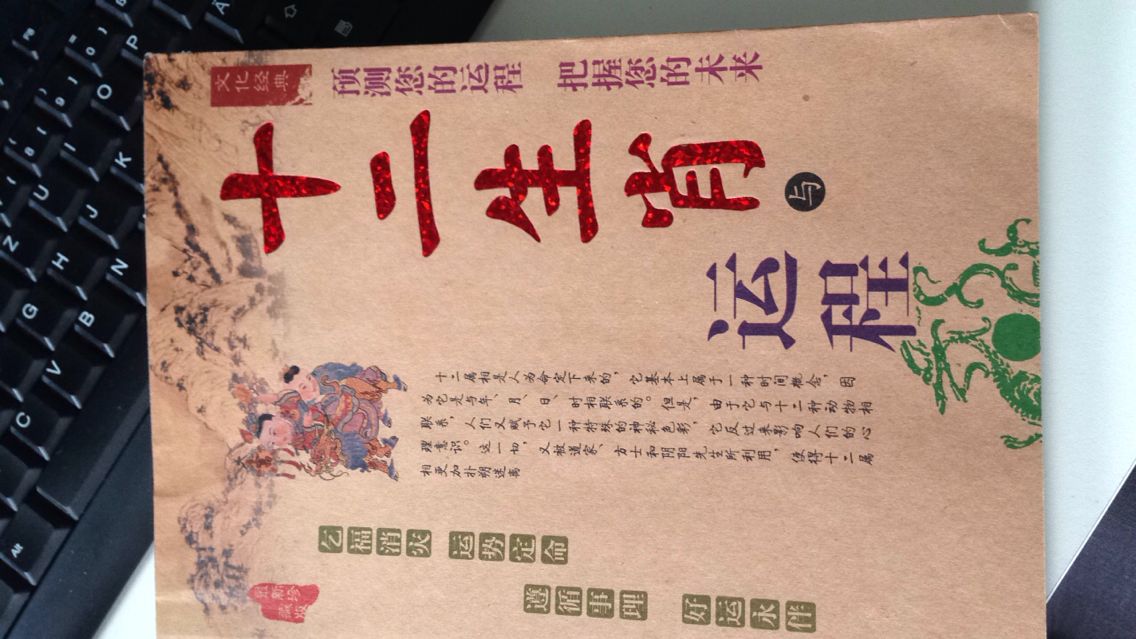 文化
经典
预测您的运程 把握您的未来
十二生肖
与
运程
十二属相是人为命定下来的，它基本上属于一种时间概念，因
为它是与年、月、日、时相联系的。但是，由于它与十二种动物相
联系，人们又赋予它一种特殊的神秘色彩，它反过来影响人们的心
理意识。这一切，又被道家、方士和阴阳先生所利用，使得十二属
相更加扑朔迷离
乞福消灾 运势定命
遵循事理 好运永伴
最新珍
藏版
Alt
C
V
B
N
G
H
J
K
U
I
O
P
Z